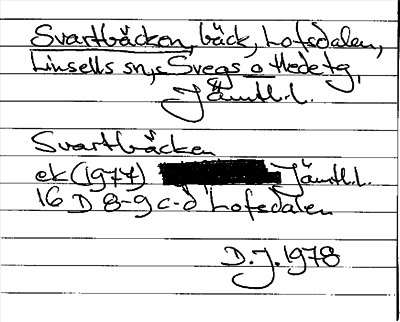 Svartbäcken, bäck, Lofsdalen,
Linsells sn, Svegs o Hede tg,
Jämtl.l.
Svartbäcken
ek (1974) Jämtl.l.
16 D 8-9 c-d Lofsdalen
D.J. 1978